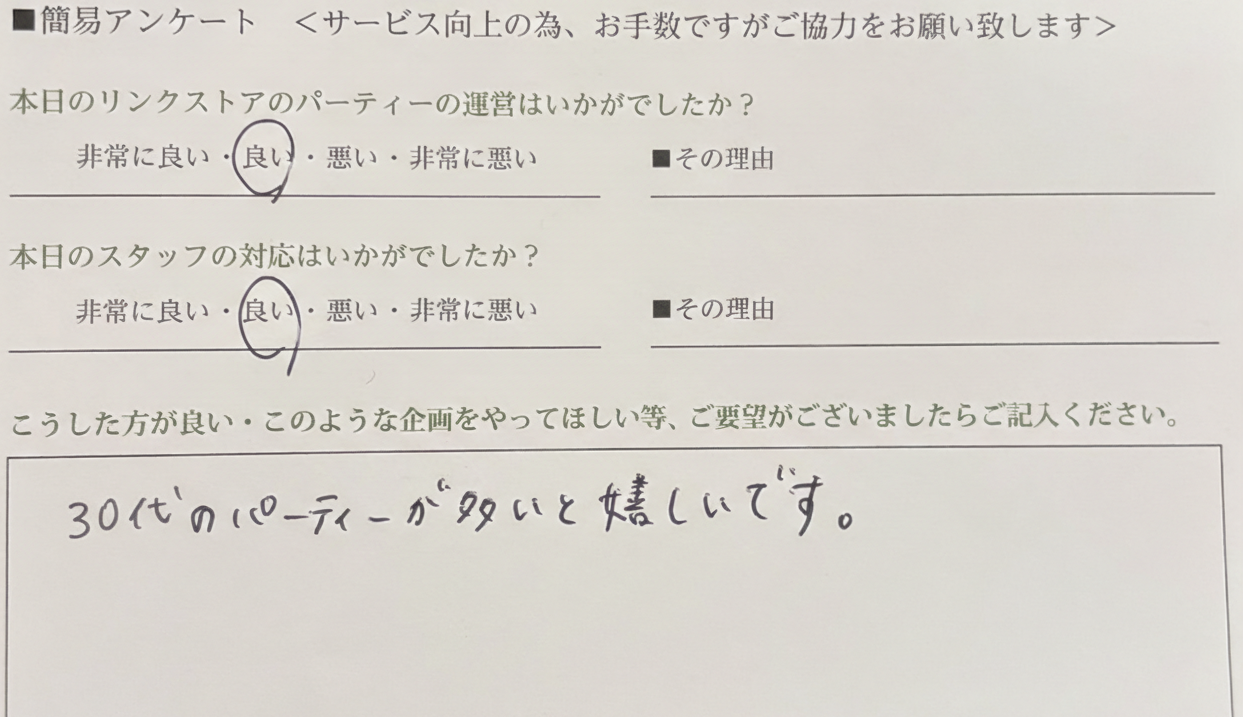 ■簡易アンケート　＜サービス向上の為、お手数ですがご協力をお願い致します＞
本日のリンクストアのパーティーの運営はいかがでしたか？
非常に良い・良い・悪い・非常に悪い　■その理由
本日のスタッフの対応はいかがでしたか？
非常に良い・良い・悪い・非常に悪い　■その理由
こうした方が良い・このような企画をやってほしい等、ご要望がございましたらご記入ください。
30代のパーティーが多いと嬉しいです。